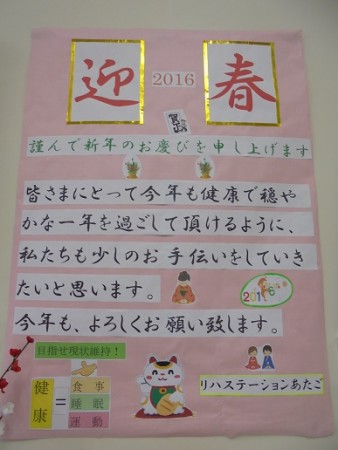 迎 2016 春
謹んで新年のお慶びを申し上げます
皆さまにとって今年も健康で穏や
かな一年を過ごして頂けるように、
私たちも少しのお手伝いをしていき
たいと思います。
2016
今年も、よろしくお願い致します。
目指せ現状維持!
健康
=
食事
睡眠
運動
リハステーションあたご